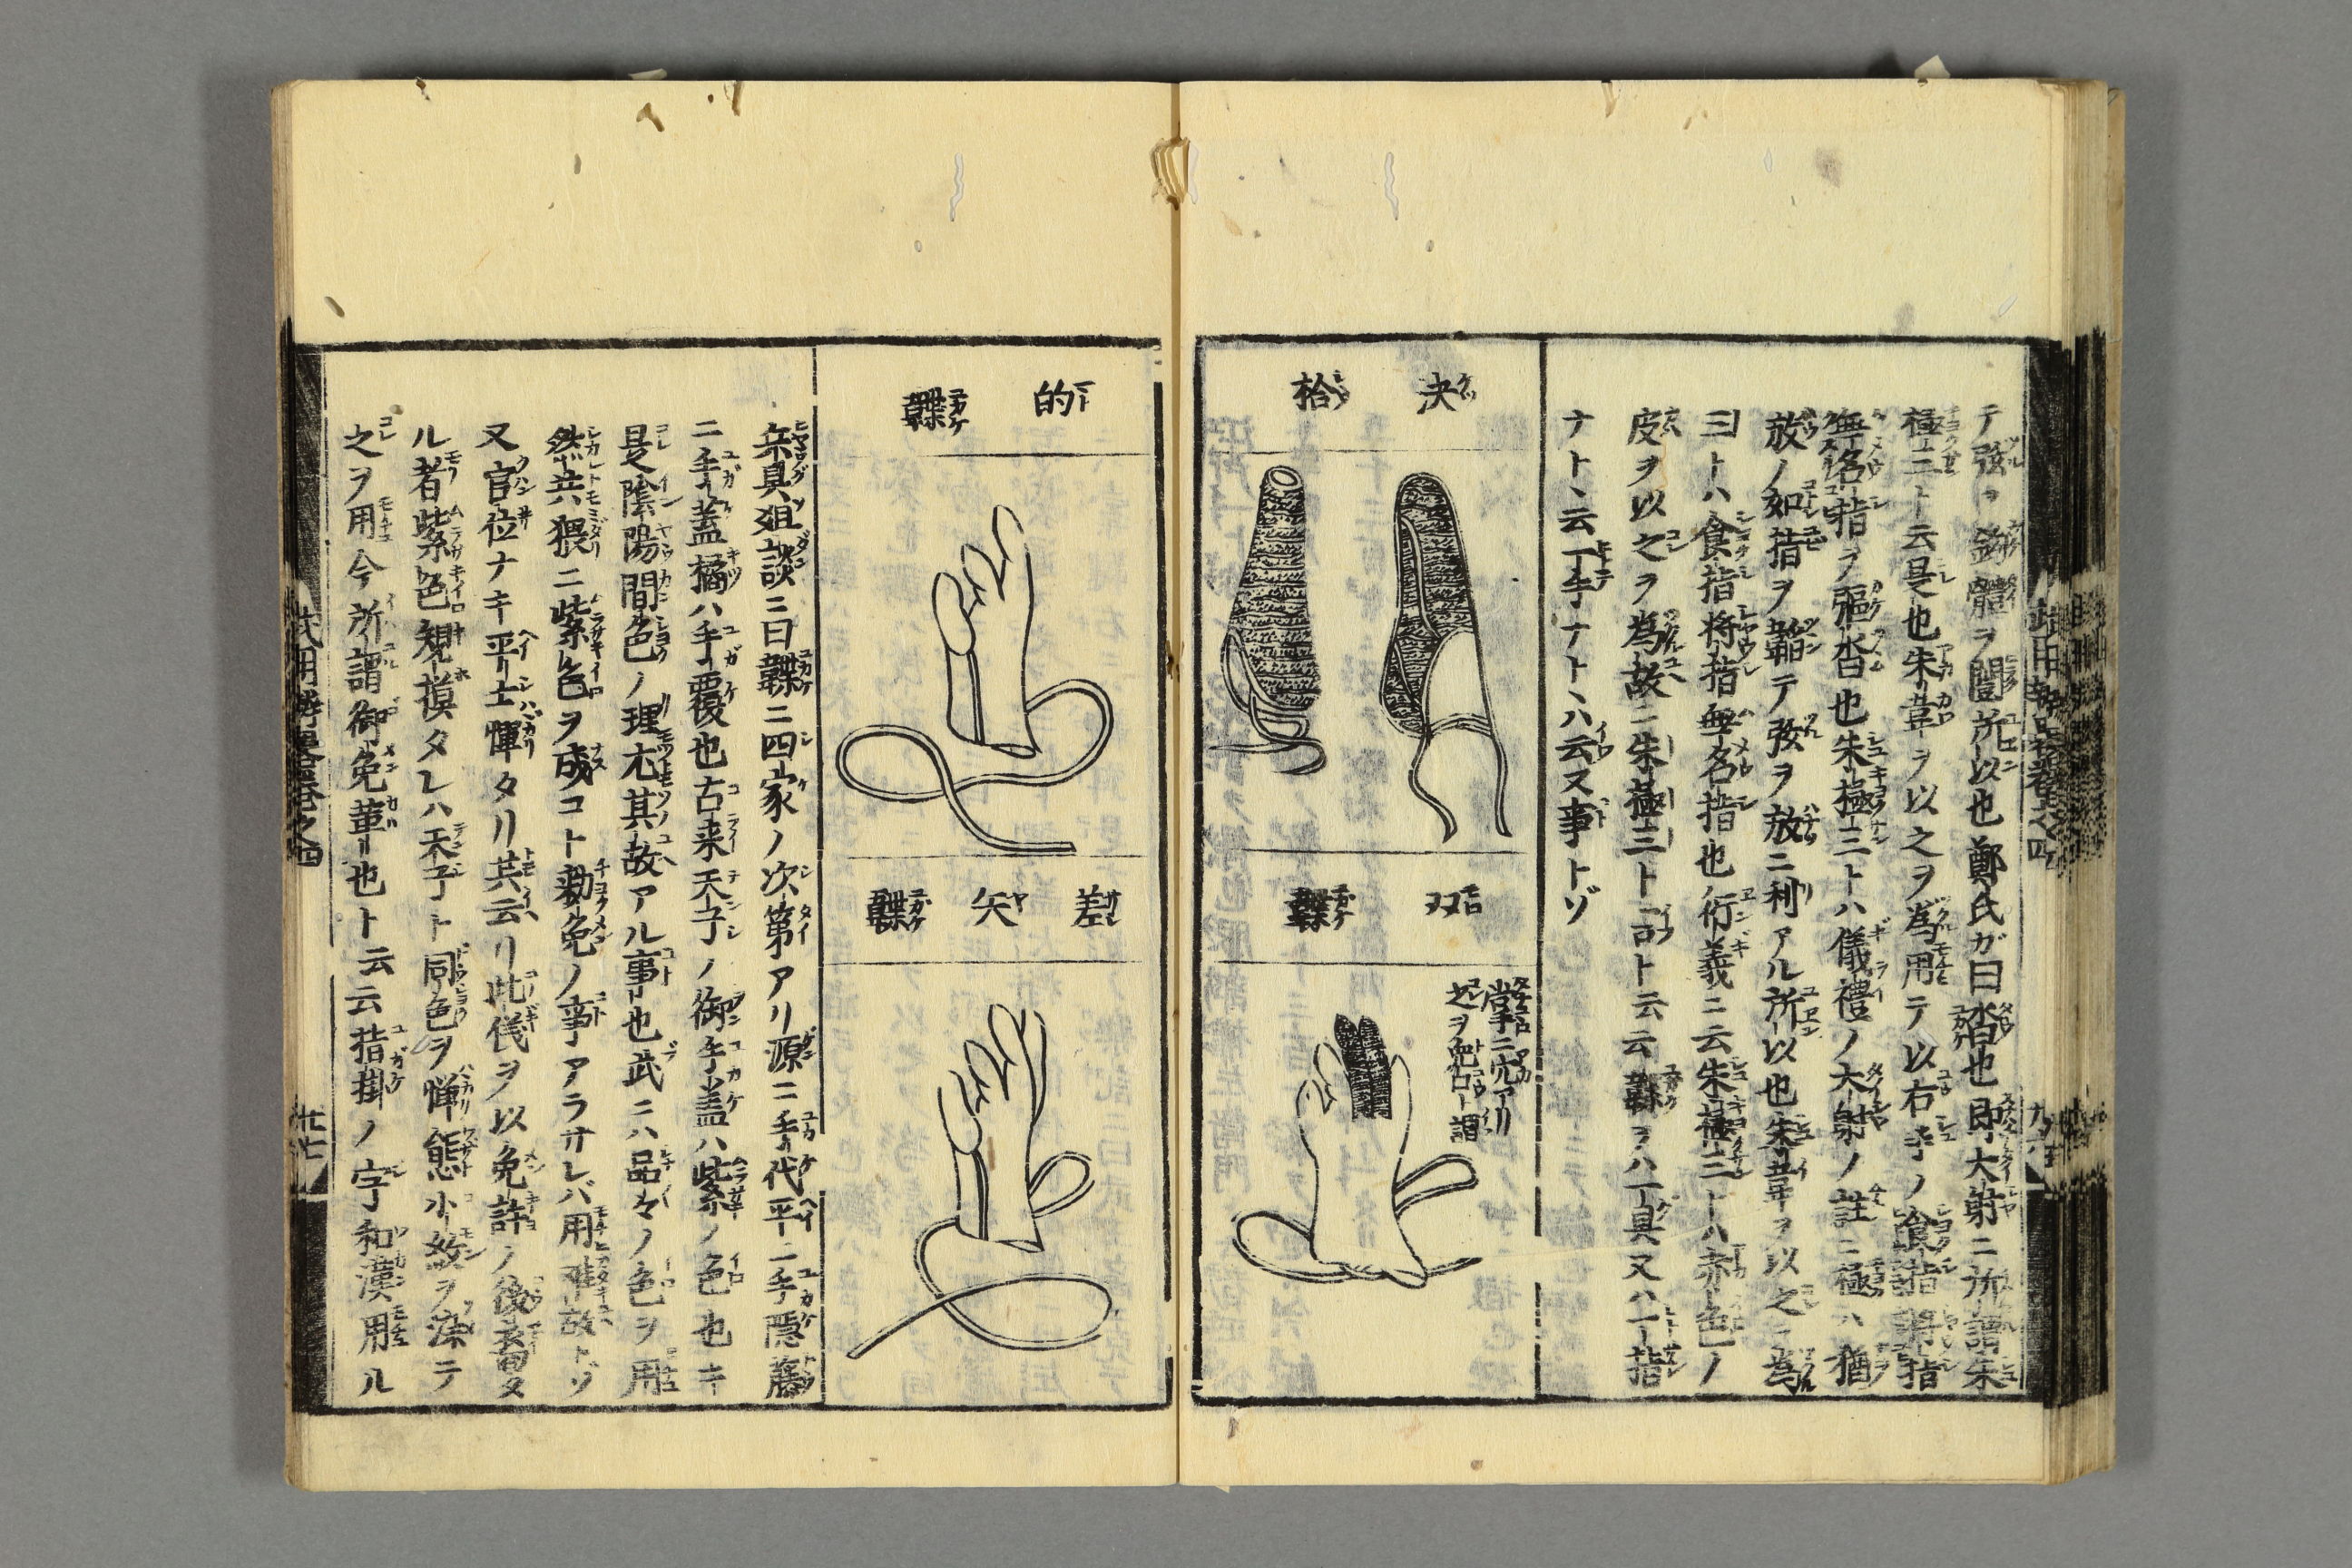 テ弦ヲ鉤體ヲ闓所以也鄭氏ガ曰沓也即大射ニ所謂朱
極三ト云是也朱韋ヲ以之ヲ為用テ以右手ノ食指将指
無名指ヲ彄沓也朱極三トハ儀禮ノ大射ノ註ニ極ハ猶
放ノ如指ヲ韜テ弦ヲ放ニ利アル所以也朱韋ヲ以之ヲ為
三トハ食指将指無名指也衍義ニ云朱極三トハ赤色ノ
皮ヲ以之ヲ為故ニ朱極三ト云云韘ヲハ一具又ハ一指
ナト丶云丁手ナト丶ハ云又事トゾ
決
拾
双
韘
掌ニ穴アリ
之ヲ兎口ト謂
的
韘
差
矢
韘
兵具爼談ニ曰韘ニ四家ノ次第アリ源ニ手代平ニ手隠藤
ニ手蓋橘ハ手覆也古来天子ノ御手盖ハ紫ノ色也キ
是陰陽間色ノ理尤其故アル事也武ニハ品々ノ色ヲ用
然共猥ニ紫色ヲ成コト勅免ノ事アラサレバ用難故トゾ
又官位ナキ平士憚タリ共云リ此儀ヲ以免許ノ後着タ
ル者紫色規摸タレハ天子ト同色ヲ憚態小紋ヲ染テ
之ヲ用今所謂御免革也ト云云指掛ノ字和漢用ル
武用辨畧巻之四
廿七